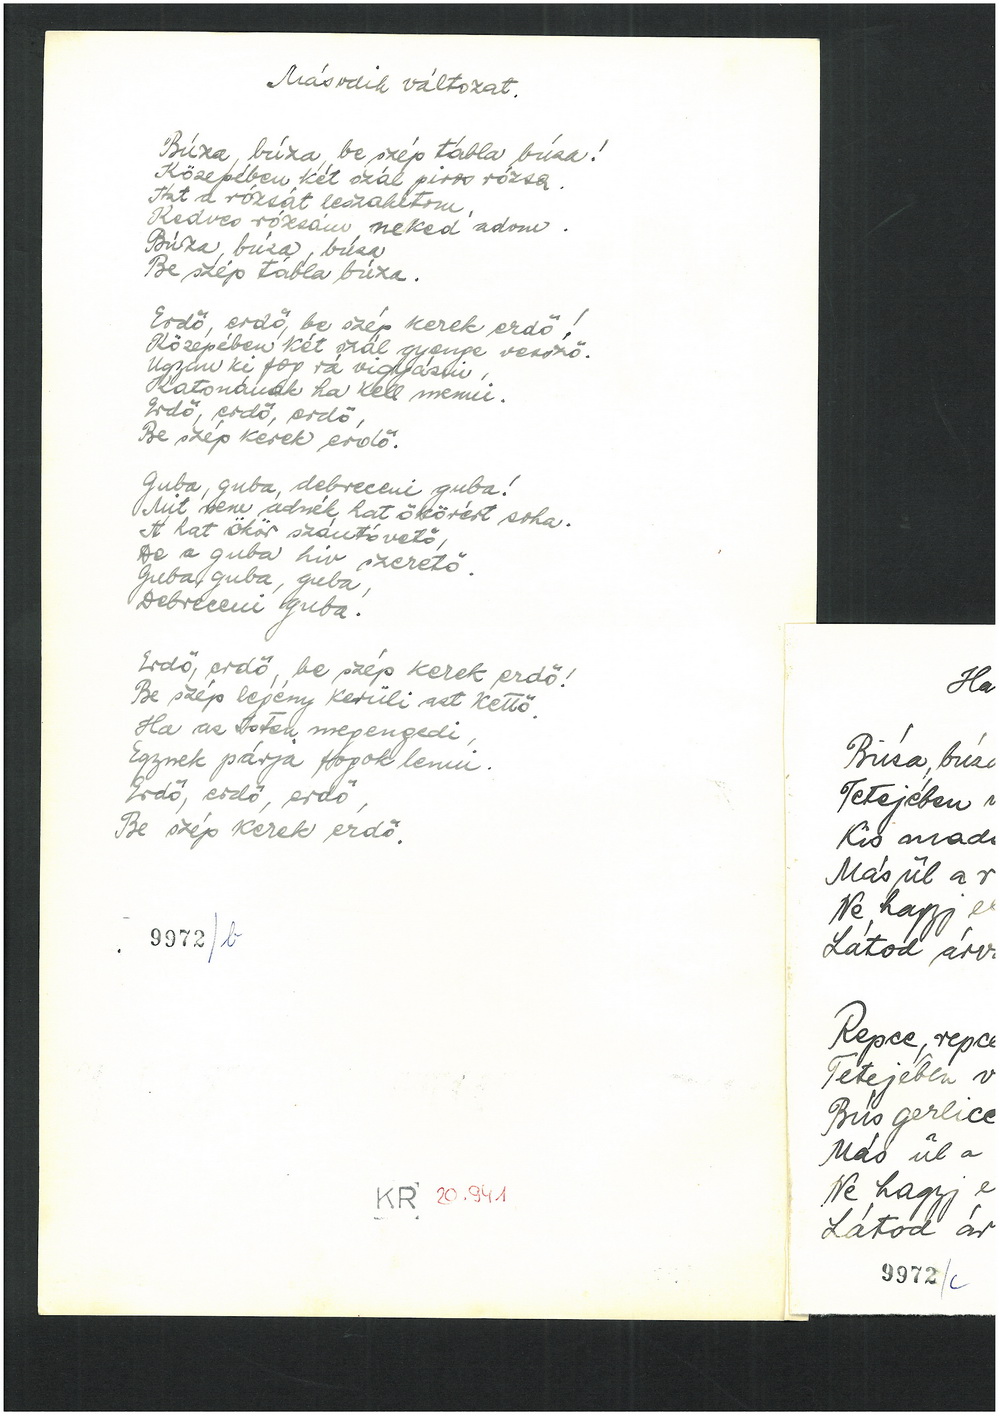 Második változat.
Búza, búza, be szép tábla búza!
Középében két szál piros rózsa.
Azt a rózsát leszakitom,
Kedves rózsám neked adom.
Búza, búza, búza
Be szép tábla búza.
Erdő, erdő, be szép kerek erdő!
Középében két szál gyenge vessző.
Ugyan ki fog rá vigyázni,
Katonának ha kell menni.
Erdő, erdő, erdő,
Be szép kerek erdő.
Guba, guba, debreceni guba!
Mit nem adnék hat ökörért soha.
A hat ökör szántóvető,
De a guba hiv szerető.
Guba, guba, guba,
Debreceni guba.
Erdő, erdő, be szép kerek erdő!
Be szép legény kerüli azt kettő.
Ha az Isten megengedi,
Egynek párja fogok lenni.
Erdő, erdő, erdő,
Be szép kerek erdő.
9972/b
KR 20.941
Ha
Búza, búza
Tetejében
Kis mad
Más ül a r
Ne hagyj e
Látod árv
Repce, repce
Tetejében v
Bús gerlice
Más ül a
Ne hagyj e
Látod ár
9972/c